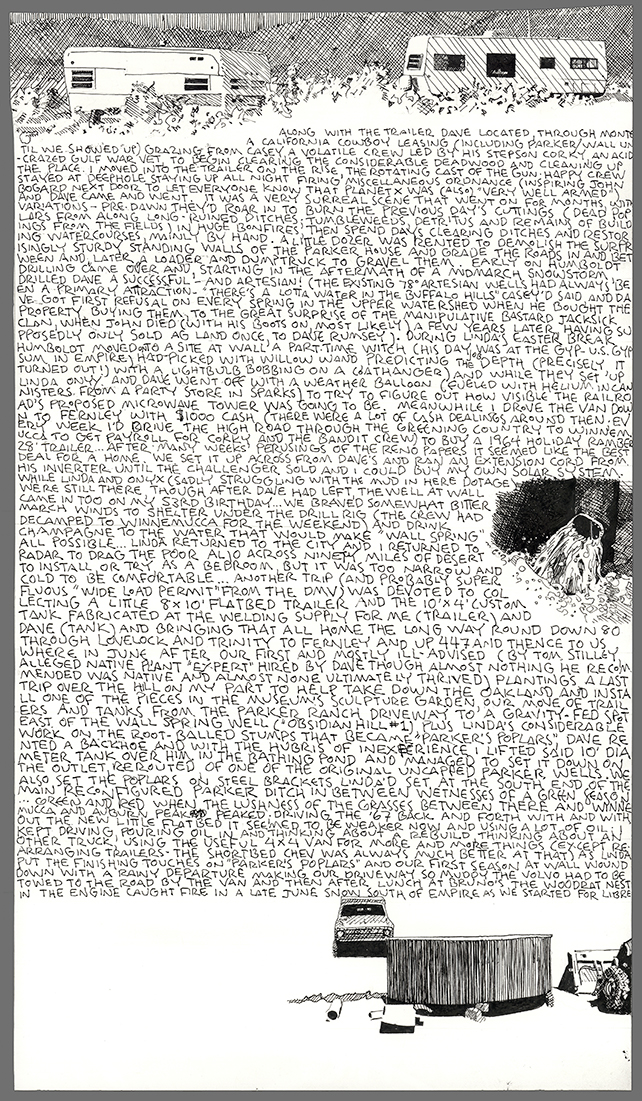 ALONG WITH THE TRAILER DAVE LOCATED, THROUGH MONT
'TIL WE SHOWED UP) GRAZING FROM CASEY A CALIFORNIA COWBOY LEASING (INCLUDING PARKER/WALL UN
-CRAZED GULF WAR VET, TO BEGIN CLEARING THE CONSIDERABLE DEADWOOD AND CLEANING UP
THE PLACE. I MOVED INTO THE TRAILER ON THE RISE, THE ROTATING CAST OF THE GUN-HAPPY CREW
STAYED AT DEEPHOLE STAYING UP ALL NIGHT FIRING MISCELLANEOUS ORDNANCE (INSPIRING JOHN
BOGARD NEXT DOOR TO LET EVERYONE KNOW THAT PLANET X WAS (ALSO) "VERY WELL ARMED")
AND DAVE CAME AND WENT. IT WAS A VERY SURREAL SCENE THAT WENT ON FOR MONTHS WITH
VARIATIONS - PRE-DAWN THEY'D ROAR IN TO BURN THE PREVIOUS DAY'S CUTTINGS (DEAD POP
LARS FROM ALONG LONG-RUINED DITCHES, TUMBLEWEEDS, DETRITUS AND REMAINS OF BUILD
INGS FROM THE FIELDS) IN HUGE BONFIRES, THEN SPEND DAYS CLEARING DITCHES AND RESTOR
ING WATERCOURSES, MAINLY BY HAND. A LITTLE DOZER WAS RENTED TO DEMOLISH THE SURPR
ISINGLY STURDY STANDING WALLS OF THE PARKER HOUSE AND GRADE THE ROADS IN AND BET
WEEN AND, LATER, A LOADER AND DUMPTRUCK TO GRAVEL THEM. EARLY ON HUMBOLDT
DRILLING CAME OVER AND, STARTING IN THE AFTERMATH OF A MIDMARCH SNOWSTORM
DRILLED DAVE A SUCCESSFUL - AND ARTESIAN! (THE EXISTING 78° ARTESIAN WELLS HAD ALWAYS BE
EN A PRIMARY ATTRACTION - "THERE'S A LOTTA WATER IN THE BUFFALO HILLS" CASEY'D SAID, AND DA
VE GOT FIRST REFUSAL ON EVERY SPRING IN THE UPPER WATERSHED WHEN HE BOUGHT THE
PROPERTY, BUYING THEM, TO THE GREAT SURPRISE OF THE MANIPULATIVE BASTARD JACKSICK
CLAN, WHEN JOHN DIED (WITH HIS BOOTS ON, MOST LIKELY) A FEW YEARS LATER, HAVING SU
PPOSEDLY ONLY SOLD AG LAND ONCE, TO DAVE RUMSEY). DURING LINDA'S EASTER BREAK
HUMBOLDT MOVED TO A SITE AT WALL A PART-TIME WITCH (HIS DAY JOB WAS AT THE GYP - US. GYP
SUM IN EMPIRE) HAD PICKED WITH WILLOW WAND, PREDICTING THE DEPTH (PRECISELY, IT
TURNED OUT!) WITH A LIGHTBULB BOBBING ON A COATHANGER) AND WHILE THEY SET UP
LINDA, ONYX, AND DAVE WENT OFF WITH A WEATHER BALLOON (FUELED WITH HELIUM IN CAN
NISTERS FROM A PARTY STORE IN SPARKS) TO TRY TO FIGURE OUT HOW VISIBLE THE RAILRO
AD'S PROPOSED MICROWAVE TOWER WAS GOING TO BE. MEANWHILE I DROVE THE VAN DOW
N TO FERNLEY WITH $1000 CASH (THERE WERE A LOT OF CASH DEALINGS AROUND THEN - EV
ERY WEEK I'D DRIVE THE HIGH ROAD THROUGH THE GREENING COUNTRY TO WINNEM
UCCA TO GET PAYROLL FOR CORKY AND THE BANDIT CREW) TO BUY A 1964 HOLIDAY RAMBLER
28' TRAILER... AFTER MANY WEEKS' PERUSINGS OF THE RENO PAPERS IT SEEMED LIKE THE BEST
DEAL FOR A HOME. WE SET IT UP ACROSS FROM DAVE'S AND RAN AN EXTENSION CORD FROM
HIS INVERTER UNTIL THE CHALLENGER SOLD AND I COULD BUY MY OWN SOLAR SYSTEM
WHILE LINDA AND ONYX (SADLY STRUGGLING WITH THE MUD IN HERE DOTAGE
WERE STILL THERE, THOUGH AFTER DAVE HAD LEFT, THE WELL AT WALL
CAME IN TOO ON MY 53RD BIRTHDAY... WE BRAVED SOMEWHAT BITTER
MARCH WINDS TO SHELTER UNDER THE DRILL RIG (THE CREW HAD
DECAMPED TO WINNEMUCCA FOR THE WEEKEND) AND DRINK
CHAMPAGNE TO THE WATER THAT WOULD MAKE "WALL SPRING"
ALL POSSIBLE... LINDA RETURNED TO THE CITY AND I RETURNED TO
RADAR TO DRAG THE POOR ALJO ACROSS NINETY MILES OF DESERT
TO INSTALL OR TRY AS A BEDROOM BUT IT WAS TOO NARROW AND
COLD TO BE COMFORTABLE... ANOTHER TRIP (AND PROBABLY SUPER
FLUOUS "WIDE LOAD PERMIT" FROM THE DMV) WAS DEVOTED TO COL
LECTING A LITTLE 8X10' FLATBED TRAILER AND THE 10'X4' CUSTOM
TANK FABRICATED AT THE WELDING SUPPLY FOR ME (TRAILER) AND
DAVE (TANK) AND BRINGING THAT ALL HOME THE LONG WAY ROUND DOWN 80
THROUGH LOVELOCK AND TRINITY TO FERNLEY AND UP 447 AND THENCE TO US
WHERE IN JUNE AFTER OUR FIRST AND MOSTLY ILL-ADVISED (BY TOM STILLEY,
ALLEGED NATIVE PLANT "EXPERT" HIRED BY DAVE THOUGH ALMOST NOTHING HE RECOM
MENDED WAS NATIVE AND ALMOST NONE ULTIMATELY THRIVED) PLANTINGS A LAST
TRIP OVER THE HILL ON MY PART TO HELP TAKE DOWN THE OAKLAND AND INSTA
LL ONE OF THE PIECES IN THE MUSEUM'S SCULPTURE GARDEN, OUR MOVE OF TRAIL
ERS AND TANKS FROM THE PARKER RANCH DRIVEWAY TO A GRAVITY-FED SPOT
EAST OF THE WALL SPRING WELL (OBSIDIAN HILL #1) PLUS LINDA'S CONSIDERABLE
WORK ON THE ROOT-BALLED STUMPS THAT BECAME "PARKER'S POPLARS" DAVE RE
NTED A BACKHOE AND WITH THE HUBRIS OF INEXPERIENCE I LIFTED SAID 10' DIA
METER TANK OVER HIM IN THE BATHING POND AND MANAGED TO SET IT DOWN ON
THE OUTLET, REROUTED, OF ONE OF THE ORIGINAL UNCAPPED PARKER WELLS. WE
ALSO SET THE POPLARS ON STEEL BRACKETS LINDA'D SET AT THE SOUTH END OF THE
MAIN RECONFIGURED PARKER DITCH IN BETWEEN WITNESSES OF A GREEN SEASON
... GREEN AND RED, WHEN THE LUSHNESS OF THE GRASSES BETWEEN THERE AND WINNE
MUCCA AND AUBURN PEAK PEAKED. DRIVING THE '67 BACK AND FORTH WITH AND WITH
OUT THE NEW LITTLE FLATBED IT SEEMED TO BE WEAKER NOW AND USING A LOT OF OIL. I
KEPT DRIVING, POURING OIL IN, AND THINKING MORE ABOUT A REBUILD, THINKING ABOUT AN
OTHER TRUCK, USING THE USEFUL 4X4 VAN FOR MORE AND MORE THINGS (EXCEPT RE
ARRANGING TRAILERS - THE SHORTBED CHEV WAS ALWAYS MUCH BETTER AT THAT) AS LINDA
PUT THE FINISHING TOUCHES ON "PARKER'S POPLARS" AND OUR FIRST SEASON AT WALL WOUND
DOWN WITH A RAINY DEPARTURE MAKING OUR DRIVEWAY SO MUDDY THE VOLVO HAD TO BE
TOWED TO THE ROAD BY THE VAN AND THEN AFTER LUNCH AT BRUNO'S, THE WOODRAT NEST
IN THE ENGINE CAUGHT FIRE IN A LATE JUNE SNOW SOUTH OF EMPIRE AS WE STARTED FOR LIBRE